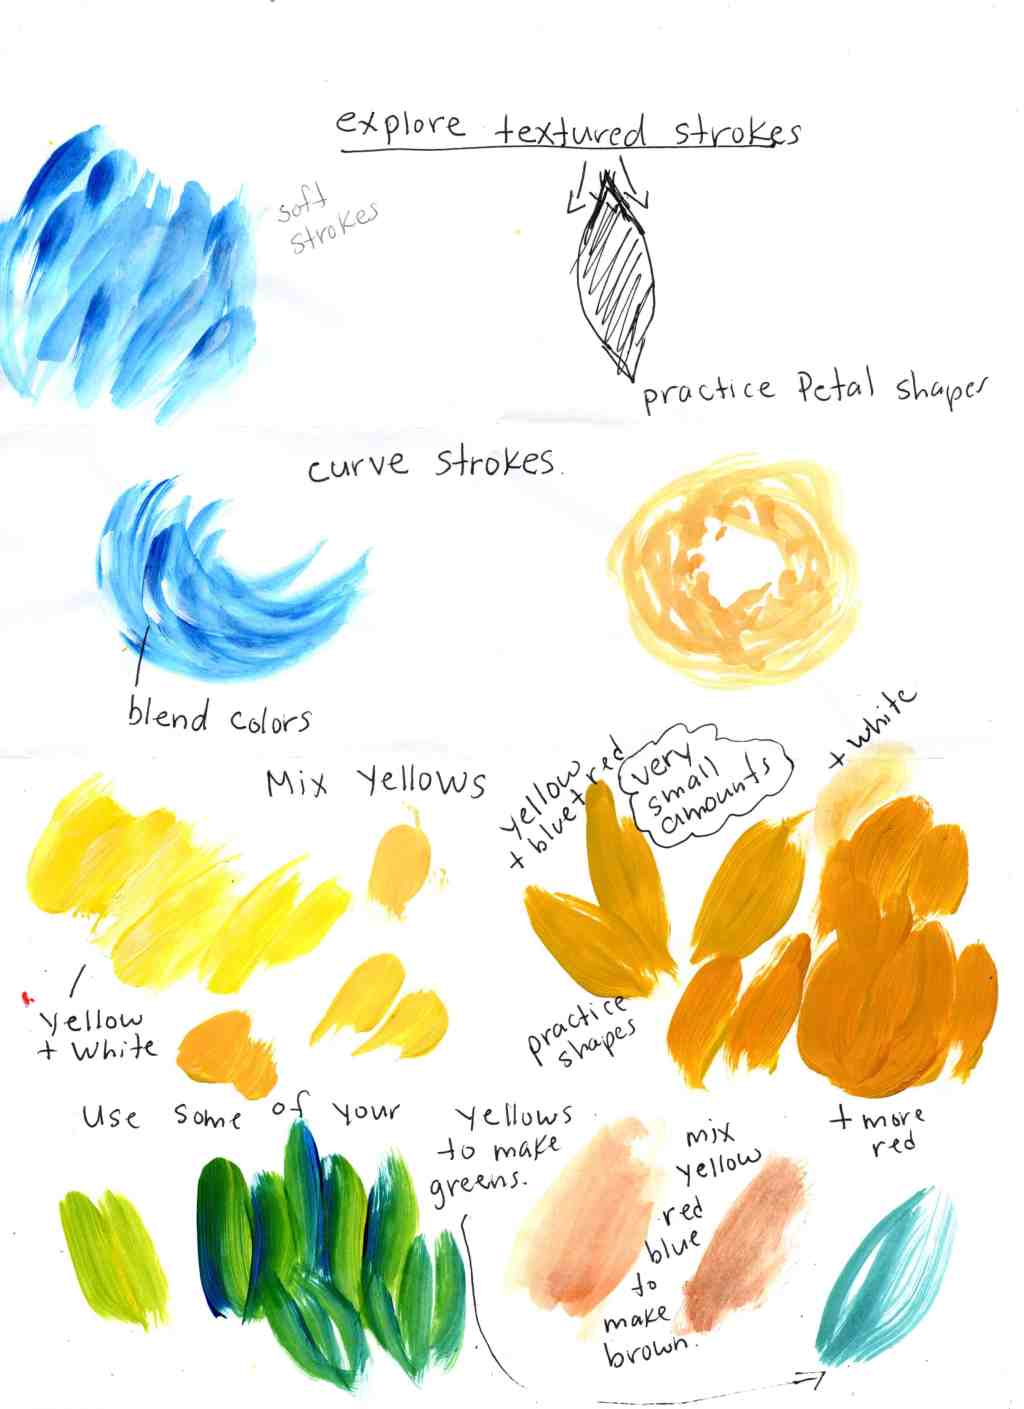 explore textured strokes
soft
strokes
practice Petal shapes
curve strokes.
blend colors
Mix Yellows
yellow
+ blue + red
very
small
amounts
+ white
yellow
+ white
practice
shapes
+ more
red
use some of your yellows
to make
greens.
mix
yellow
red
blue
to
make
brown.